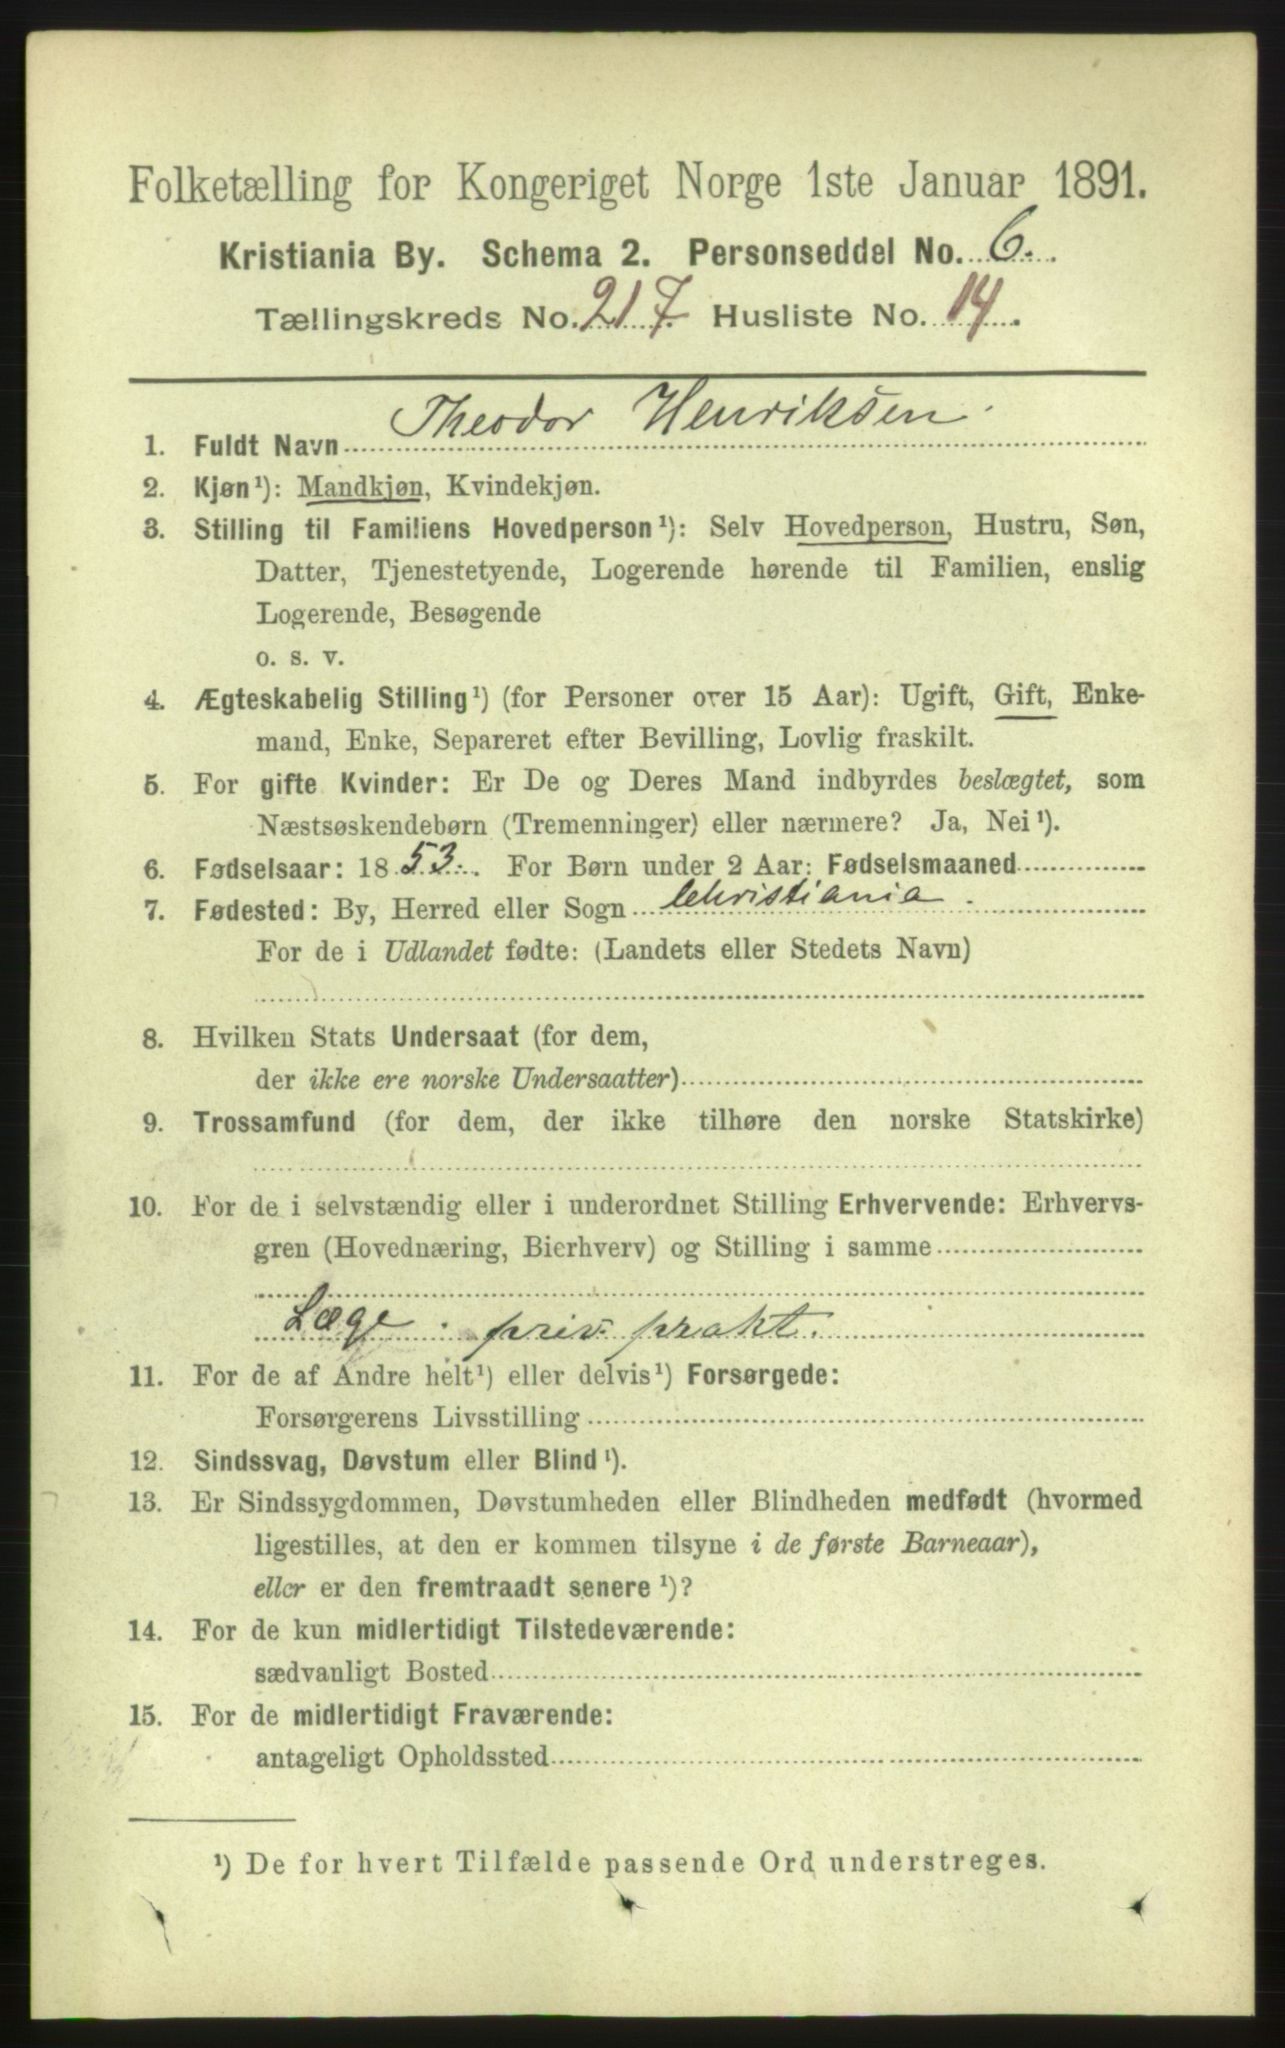 Folketælling for Kongeriget Norge 1ste Januar 1891.
Kristiania By. Schema 2. Personseddel No. 6.
Tællingskreds No. 217 Husliste No. 14.
1. Fuldt Navn Theodor Henriksen.
2. Kjøn¹): Mandkjøn, Kvindekjøn.
3. Stilling til Familiens Hovedperson¹): Selv Hovedperson, Hustru, Søn,
Datter, Tjenestetyende, Logerende hørende til Familien, enslig
Logerende, Besøgende
o. s. v.
4. Ægteskabelig Stilling¹) (for Personer over 15 Aar): Ugift, Gift, Enke-
mand, Enke, Separeret efter Bevilling, Lovlig fraskilt.
5. For gifte Kvinder: Er De og Deres Mand indbyrdes beslægtet, som
Næstsøskendebørn (Tremenninger) eller nærmere? Ja, Nei¹).
6. Fødselsaar: 1853. For Børn under 2 Aar: Fødselsmaaned
7. Fødested: By, Herred eller Sogn Christiania.
For de i Udlandet fødte: (Landets eller Stedets Navn)
8. Hvilken Stats Undersaat (for dem,
der ikke ere norske Undersaatter)
9. Trossamfund (for dem, der ikke tilhøre den norske Statskirke)
10. For de i selvstændig eller i underordnet Stilling Erhvervende: Erhvervs-
gren (Hovednæring, Bierhverv) og Stilling i samme
Læge. priv. prakt.
11. For de af Andre helt¹) eller delvis¹) Forsørgede:
Forsørgerens Livsstilling
12. Sindssvag, Døvstum eller Blind¹).
13. Er Sindssygdommen, Døvstumheden eller Blindheden medfødt (hvormed
ligestilles, at den er kommen tilsyne i de første Barneaar),
eller er den fremtraadt senere¹)?
14. For de kun midlertidigt Tilstedeværende:
sædvanligt Bosted
15. For de midlertidigt Fraværende:
antageligt Opholdssted
¹) De for hvert Tilfælde passende Ord understreges.